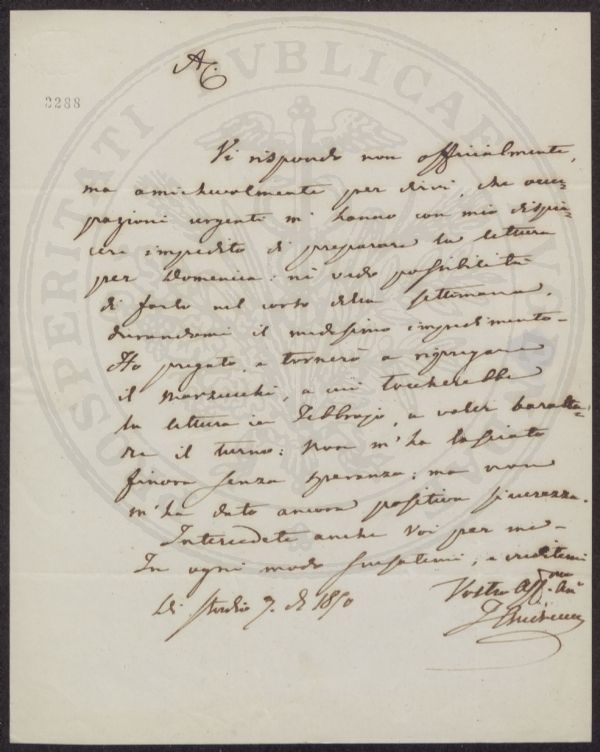 A.C.
2288
PROSPERITATI PUBLICAE
Vi rispondo non officialmente,
ma amichevolmente per dirvi, che occu-
pazioni urgenti m' hanno con mio dispia-
cere impedito di preparare la lettura
per Domenica: nè vedo possibilità
di farlo nel corso della settimana,
durandomi il medesimo impedimento.
Ho pregato, e tornerò a ripregare
il Marzucchi, a cui toccherebbe
la lettura in Febbrajo, a voler baratta-
re il turno: Non m'ha lasciato
finora senza speranza; ma non
m'ha dato ancora positiva sicurezza.
Intercedete anche Voi per me-
In ogni modo scusatemi, e credetemi
Di Studio 7. di 1850
Vostro Aff.mo Am.